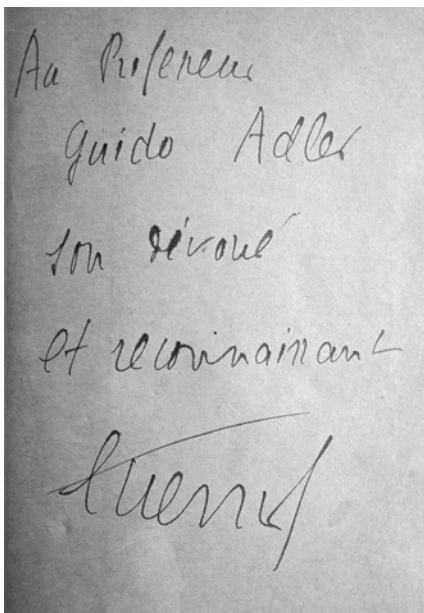 Au Professeur
Guido Adler
son dévoué
et reconnaissant